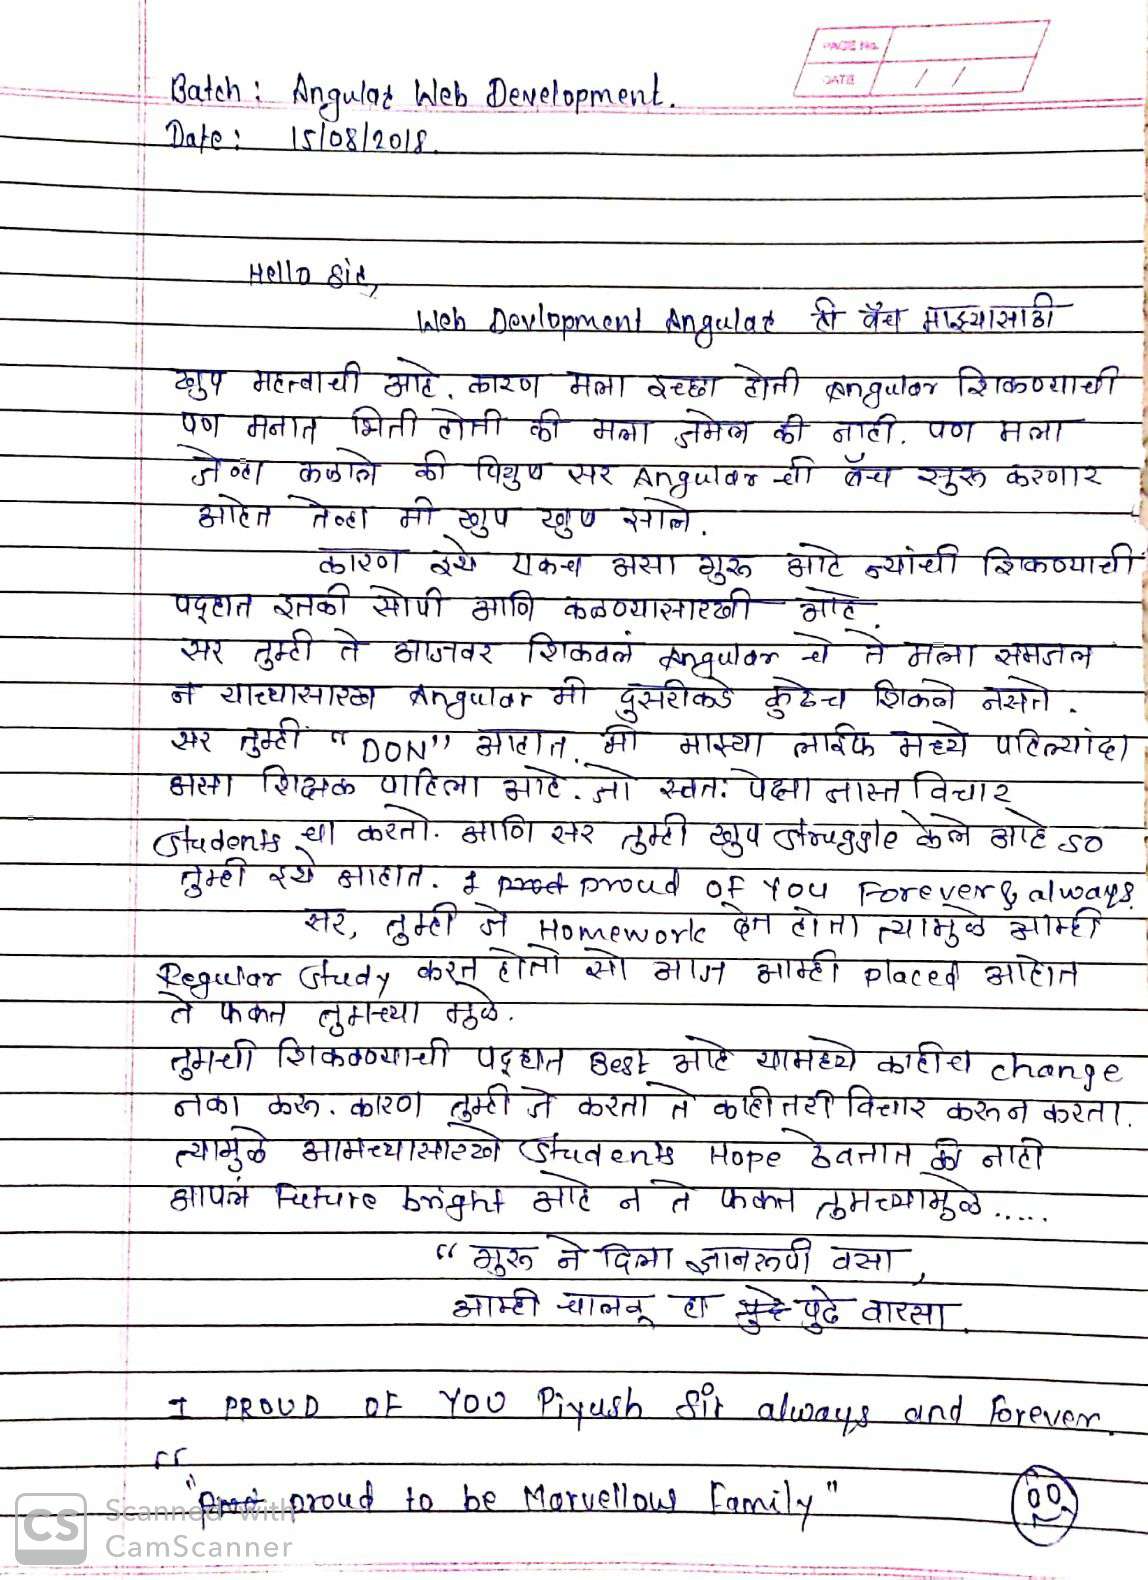 PAGE No.
DATE / /
Batch : Angular Web Development.
Date : 15/08/2018.
Hello Sir,
Web Devlopment Angular ही बॅच माझ्यासाठी
खुप महत्वाची आहे. कारण मला इच्छा होती Angular शिकण्याची
पण मनात भिती होती की मला जमेल की नाही. पण मला
जेव्हा कळाले की पियुष सर Angular ची बॅच सुरू करणार
आहेत तेव्हा मी खुप खुष झाले.
कारण इथे एकच असा गुरू आहे ज्यांची शिकण्याची
पद्धत इतकी सोपी आणि कळण्यासारखी आहे.
सर तुम्ही ते आजवर शिकवलं Angular चे ते मला समजल
न याच्यासारख Angular मी दुसरीकडे कुठेच शिकले नसते.
सर तुम्ही “DON” आहात. मी माझ्या लाईफ मध्ये पहिल्यांदा
असा शिक्षक पाहिला आहे. जो स्वतः पेक्षा जास्त विचार
students चा करतो. आणि सर तुम्ही खुप struggle केले आहे so
तुम्ही इथे आहात. I proud OF YOU Forever & always.
सर, तुम्ही जे Homework देत होता त्यामुळे आम्ही
Regular study करत होतो सो आज आम्ही placed आहोत
ते फकत तुमच्या मुळे.
तुमची शिकवण्याची पद्धत Best आहे यामध्ये काहीच change
नका करू. कारण तुम्ही जे करता ते काहीतरी विचार करून करता.
त्यामुळे आमच्यासारखे students Hope ठेवतात की नाही
आपलं Future bright आहे न ते फकत तुमच्यामुळे.....
“गुरू ने दिला ज्ञानरूपी वसा,
आम्ही चालवू हा पुढे वारसा.
I PROUD OF YOU Piyush Sir always and Forever.
“
"proud to be Marvellous Family"
CS Scanned with
CamScanner